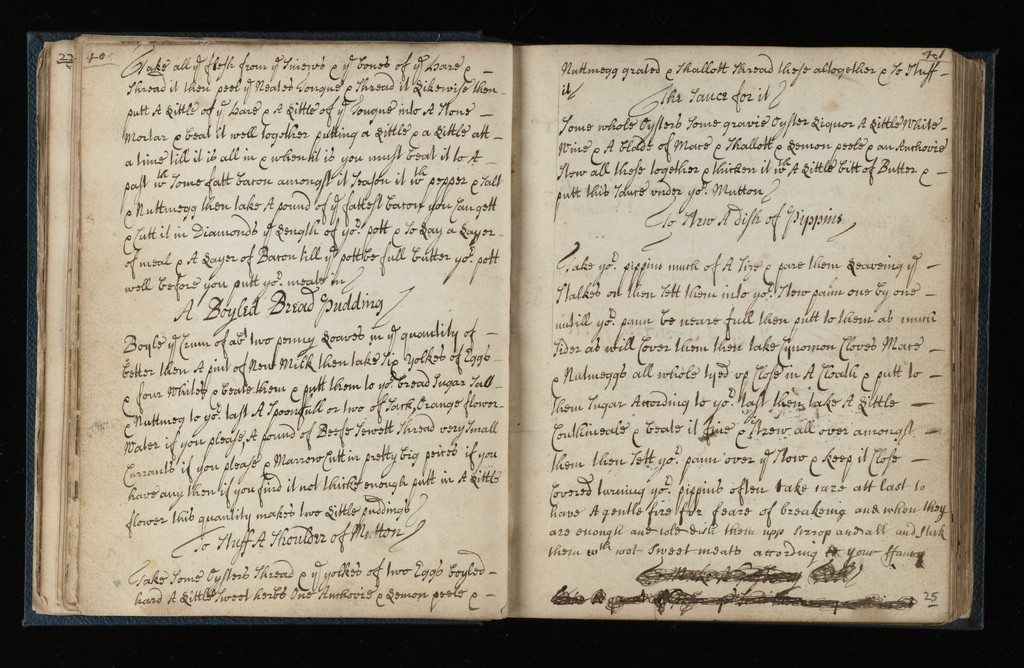 22 40
Take all ye flesh from ye sinews & ye bones of ye Hare &
shread it then peel ye Neates Tongue & shread it likewise then
putt A Little of ye Hare & A Little of ye Tongue into A Stone
Mortar & beat it well together putting a Little & a Little att
a time till it is all in & when it is you must beat it to A
past wth some fatt bacon amongst it season it wth pepper & salt
& Nuttmegg then take A pound of ye fattest bacon you can gett
& Cutt it in Diamonds ye Length of yor pott & so Lay a Layer
of meat & A Layer of Bacon till ye pott be full butter yor pott
well before you putt yor meate in
A Boyled Bread Pudding
Boyle ye Crum of abt two penny Loaves in ye quantity of
better then A pint of New Milk then take Six Yolkes of Eggs
& four Whites & beate them & putt them to yor bread Sugar Salt
& Nuttmeg to yor tast A Spoonfull or two of Sack, Orange flower
Water if you please A pound of Beefe Sewett Shread very Small
Currants if you please & Marrow Cutt in pretty big peices if you
have any then if you find it not thick enough putt in A Little
flower this quantity makes two Little puddings
To Stuff A Shoulder of Mutton
Take Some Oysters Shread & ye yolkes of two Eggs boyled
hard A Little Sweet herbs One Anchovie & Lemon peele &
41
Nuttmegg grated & Shallott Shread these altogether & So Stuff
it
The Sauce for it
Some whole Oysters Some gravie Oyster Liquor A Little White
Wine & A blade of Mace & Shallott & Lemon peele & an Anchovie
Stow all these together & thicken it wth A Little bitt of Butter &
putt this Sauce under yor Mutton
To Stew A dish of Pippins
Take yor pippins much of A Size & pare them Leaveing ye
Stalkes on then Sett them into yor Stew pann one by one
untill yor pann be neare full then putt to them as much
Sider as will Cover them then take Cynomon Cloves Mace
& Nutmeggs all whole tyed up Close in A Cloath & putt to
them Sugar According to yor tast then take A Little
Coutkineale & beate it fine & Strew all over amongst
them then Sett yor pann over ye Stow & keep it Close
Covered turning yor pippins often take care att last to
have A gentle fire for feare of breakeing and when they
are enough and cold dish them upp Sirrop and all and Stick
them wth wet Sweet meats according to your ffancy
25